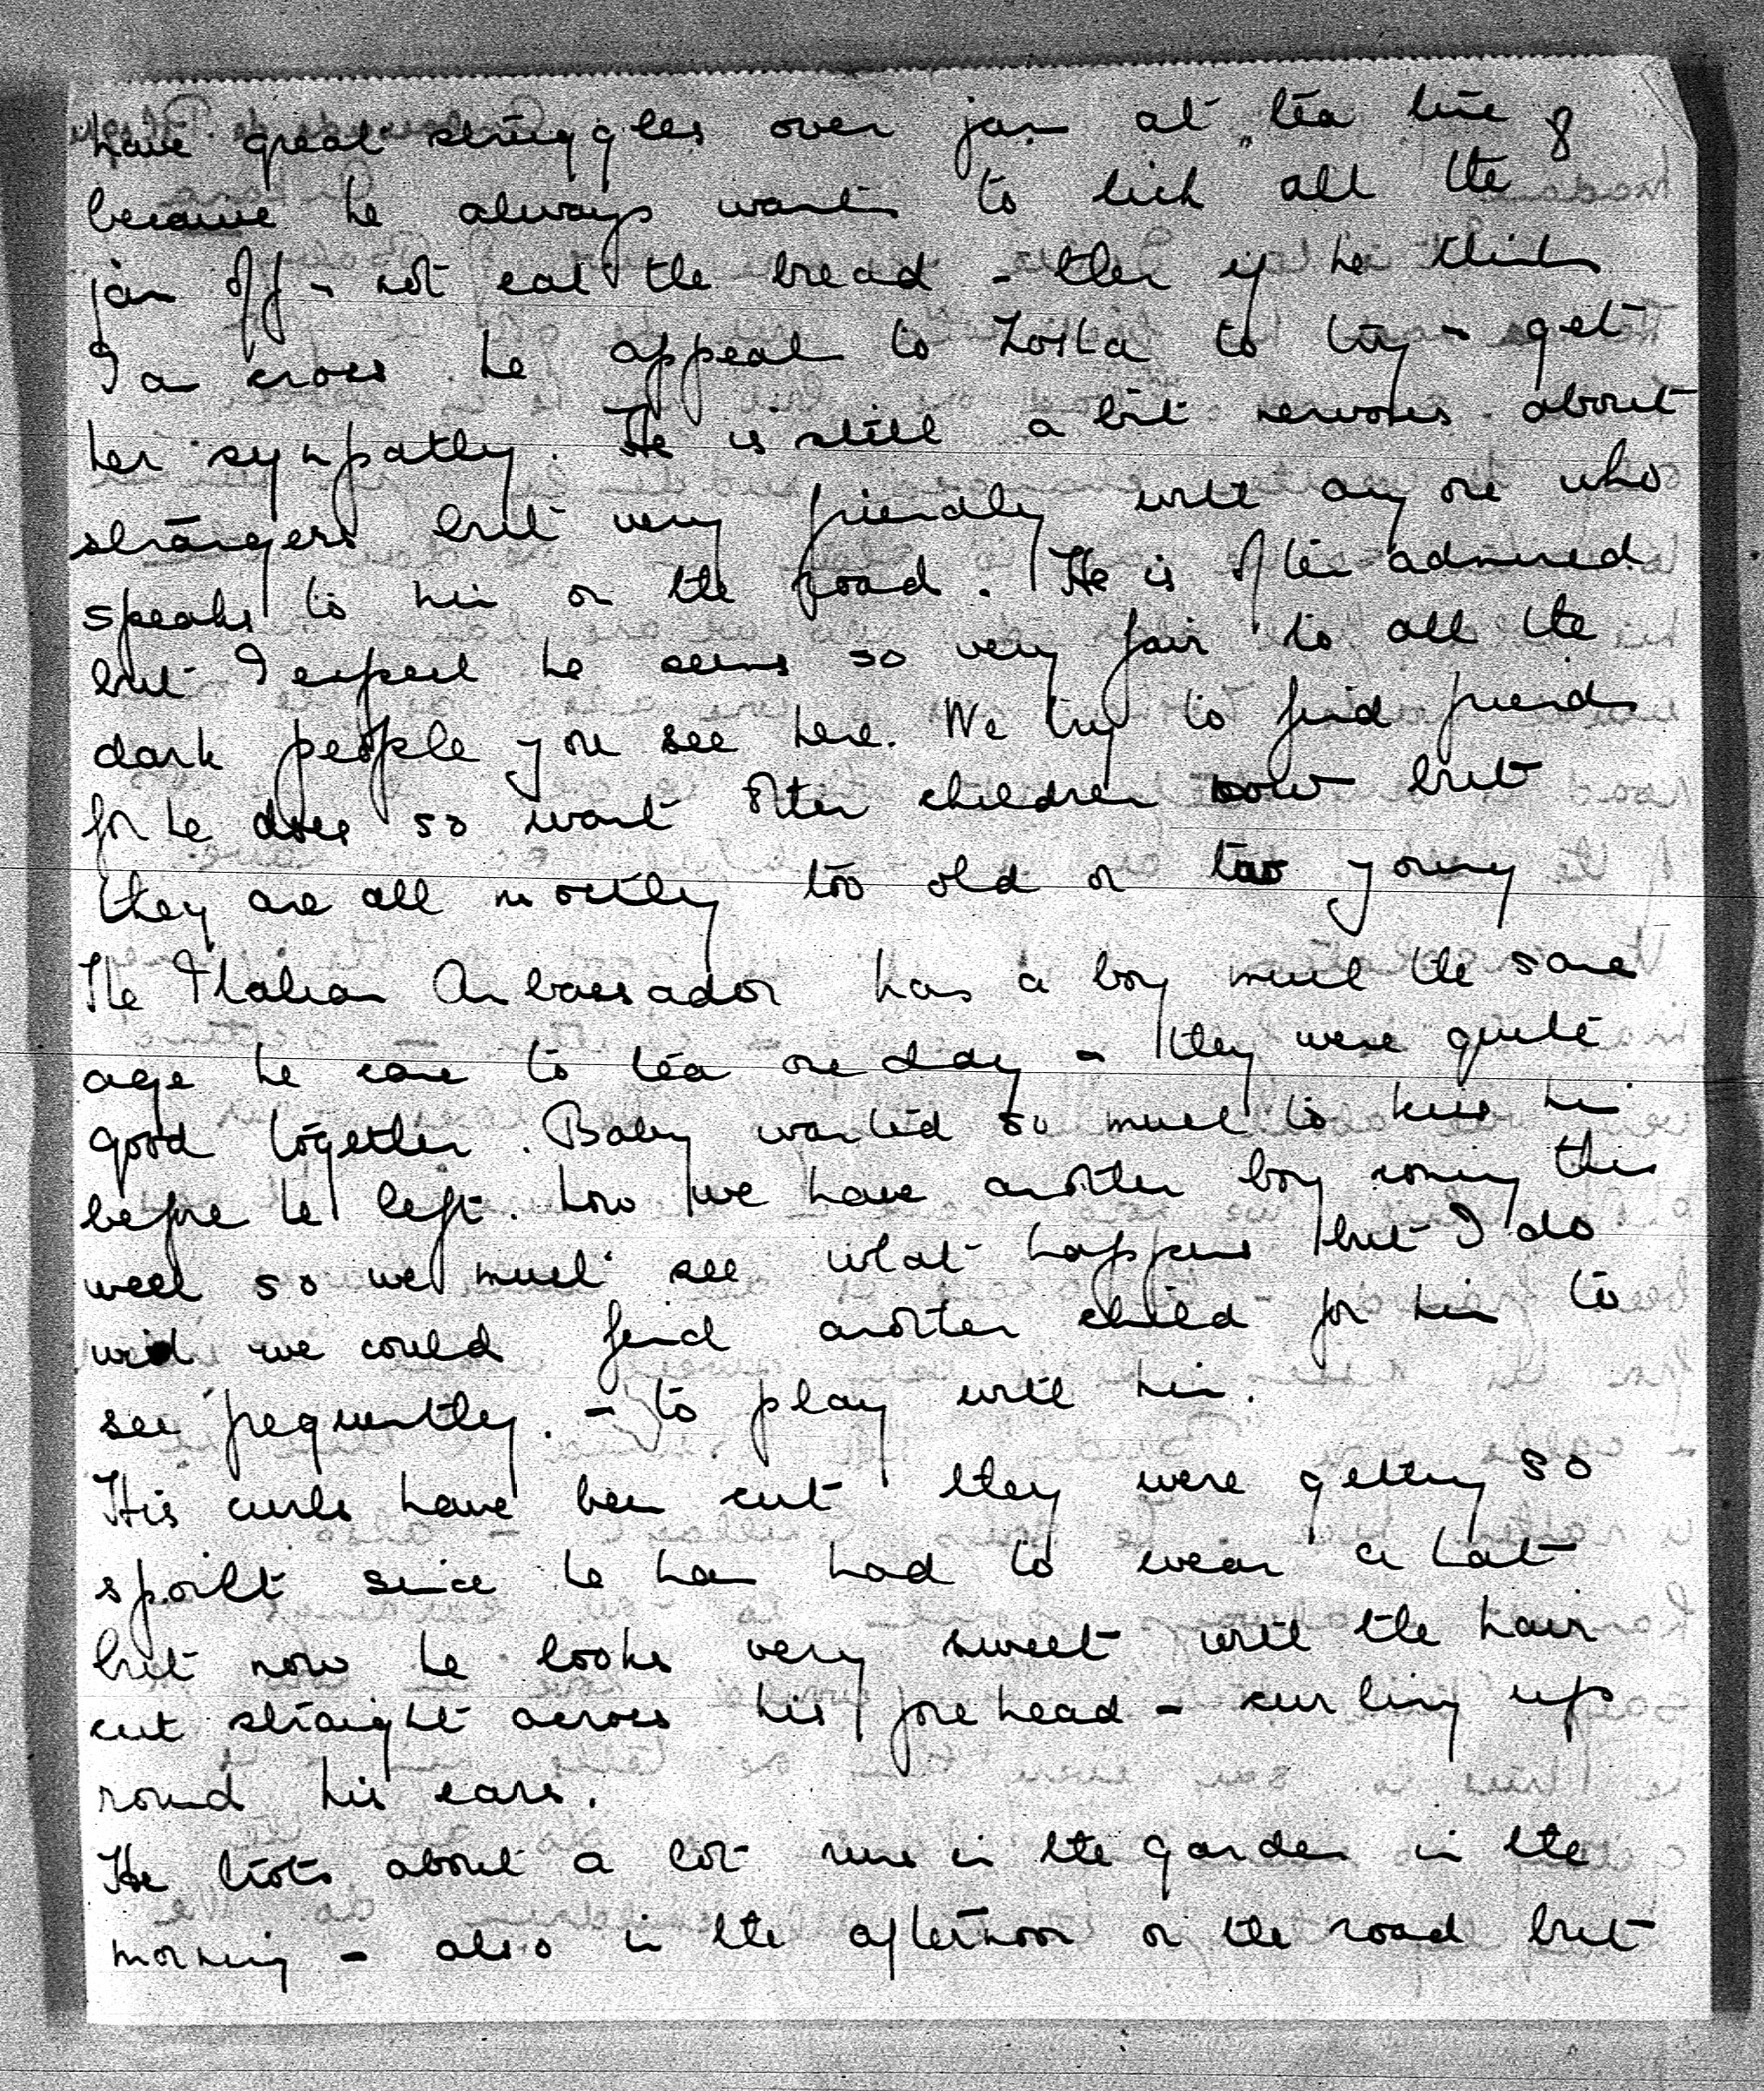 have great struggles over jam at tea time &
because he always wants to lick all the
jam off - not eat the bread - then if he thinks
I am cross he appeals to Zosia to try - get
her sympathy. He is still a bit nervous about
strangers but very friendly with any one who
speaks to him on the road. He is often admired
but I expect he seems so very fair to all the
dark people you see here. We try to find friends
for he does so want other children now but
they are all mostly too old or too young
The Italian Ambassador has a boy much the same
age he came to tea one day - they were quite
good together. Baby wanted so much to kiss him
before he left. Now we have another boy coming this
week so we must see what happens but I do
wish we could find another child for him to
see frequently. - to play with him.
His curls have been cut they were getting so
spoilt since he has had to wear a hat
but now he looks very sweet with the hair
cut straight across his forehead - curling up
round his ears.
He trots about a lot runs in the garden in the
morning - also in the afternoon on the road but